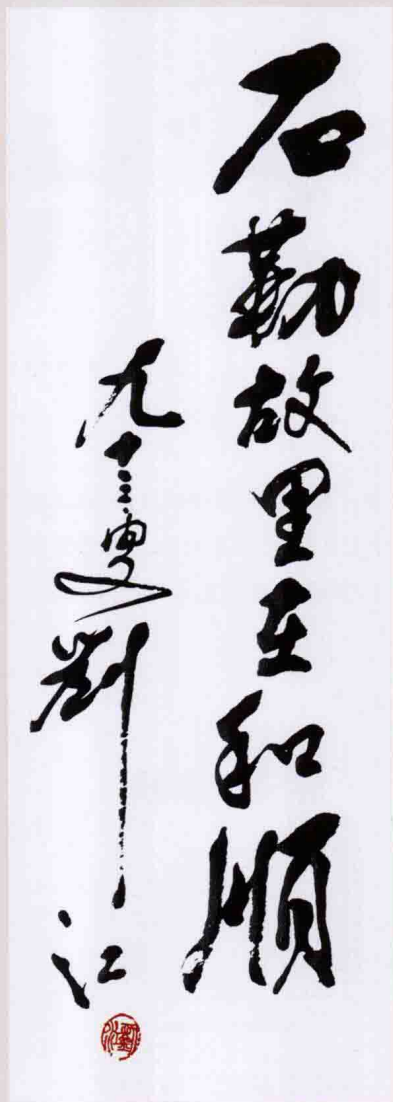 石勒故里在和順
九十三叟劉江